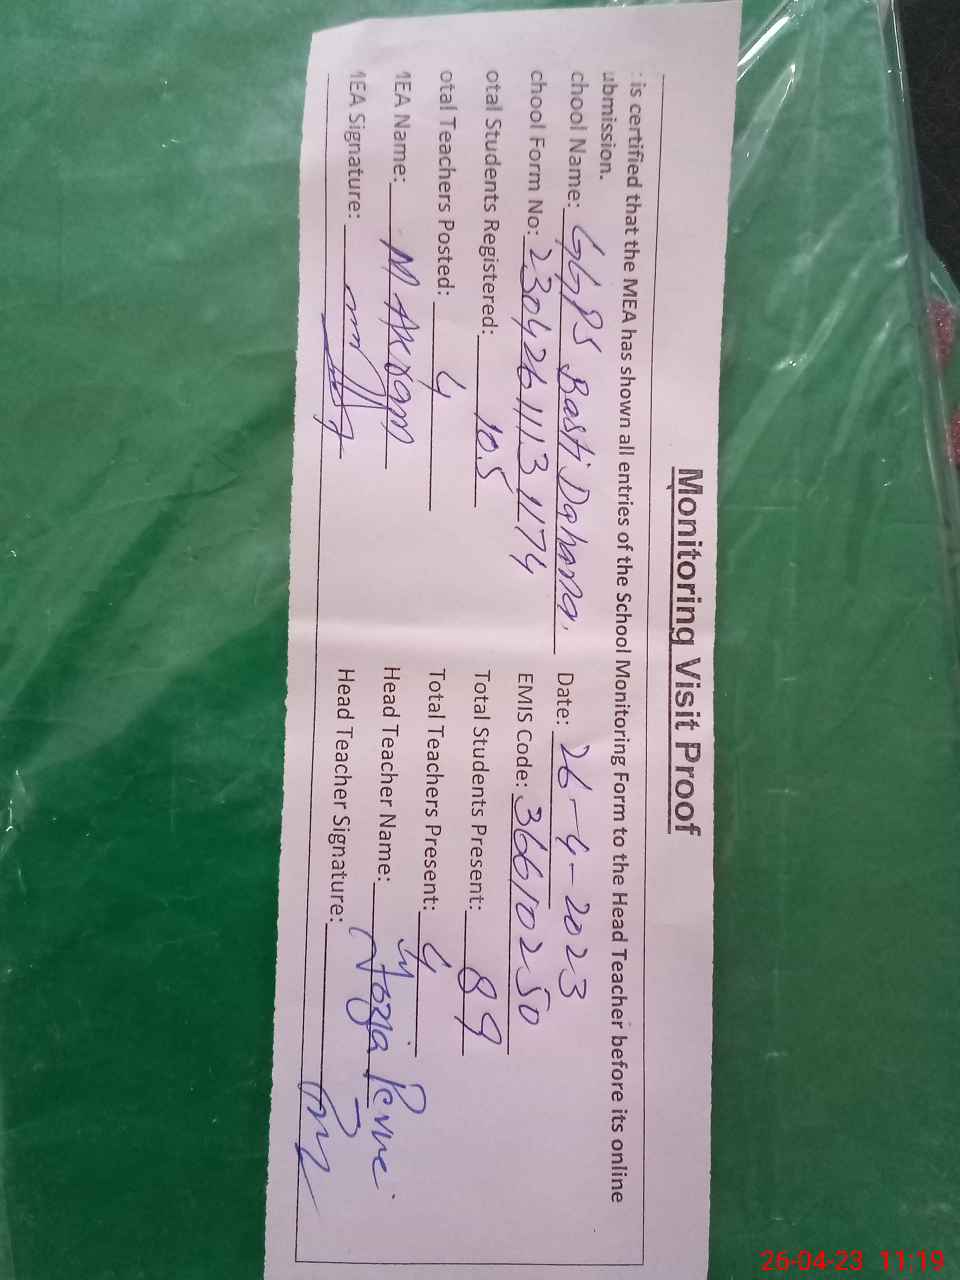 Monitoring Visit Proof
is certified that the MEA has shown all entries of the School Monitoring Form to the Head Teacher before its online
ubmission.
chool Name: GGPS Basti Dahana. Date: 26-4-2023
chool Form No: 230426111311174 EMIS Code: 36610250
otal Students Registered: 105 Total Students Present: 89
otal Teachers Posted: 4 Total Teachers Present: 4
MEA Name: M Akram Head Teacher Name: Fozia
MEA Signature: Head Teacher Signature:
26-04-23 11:19